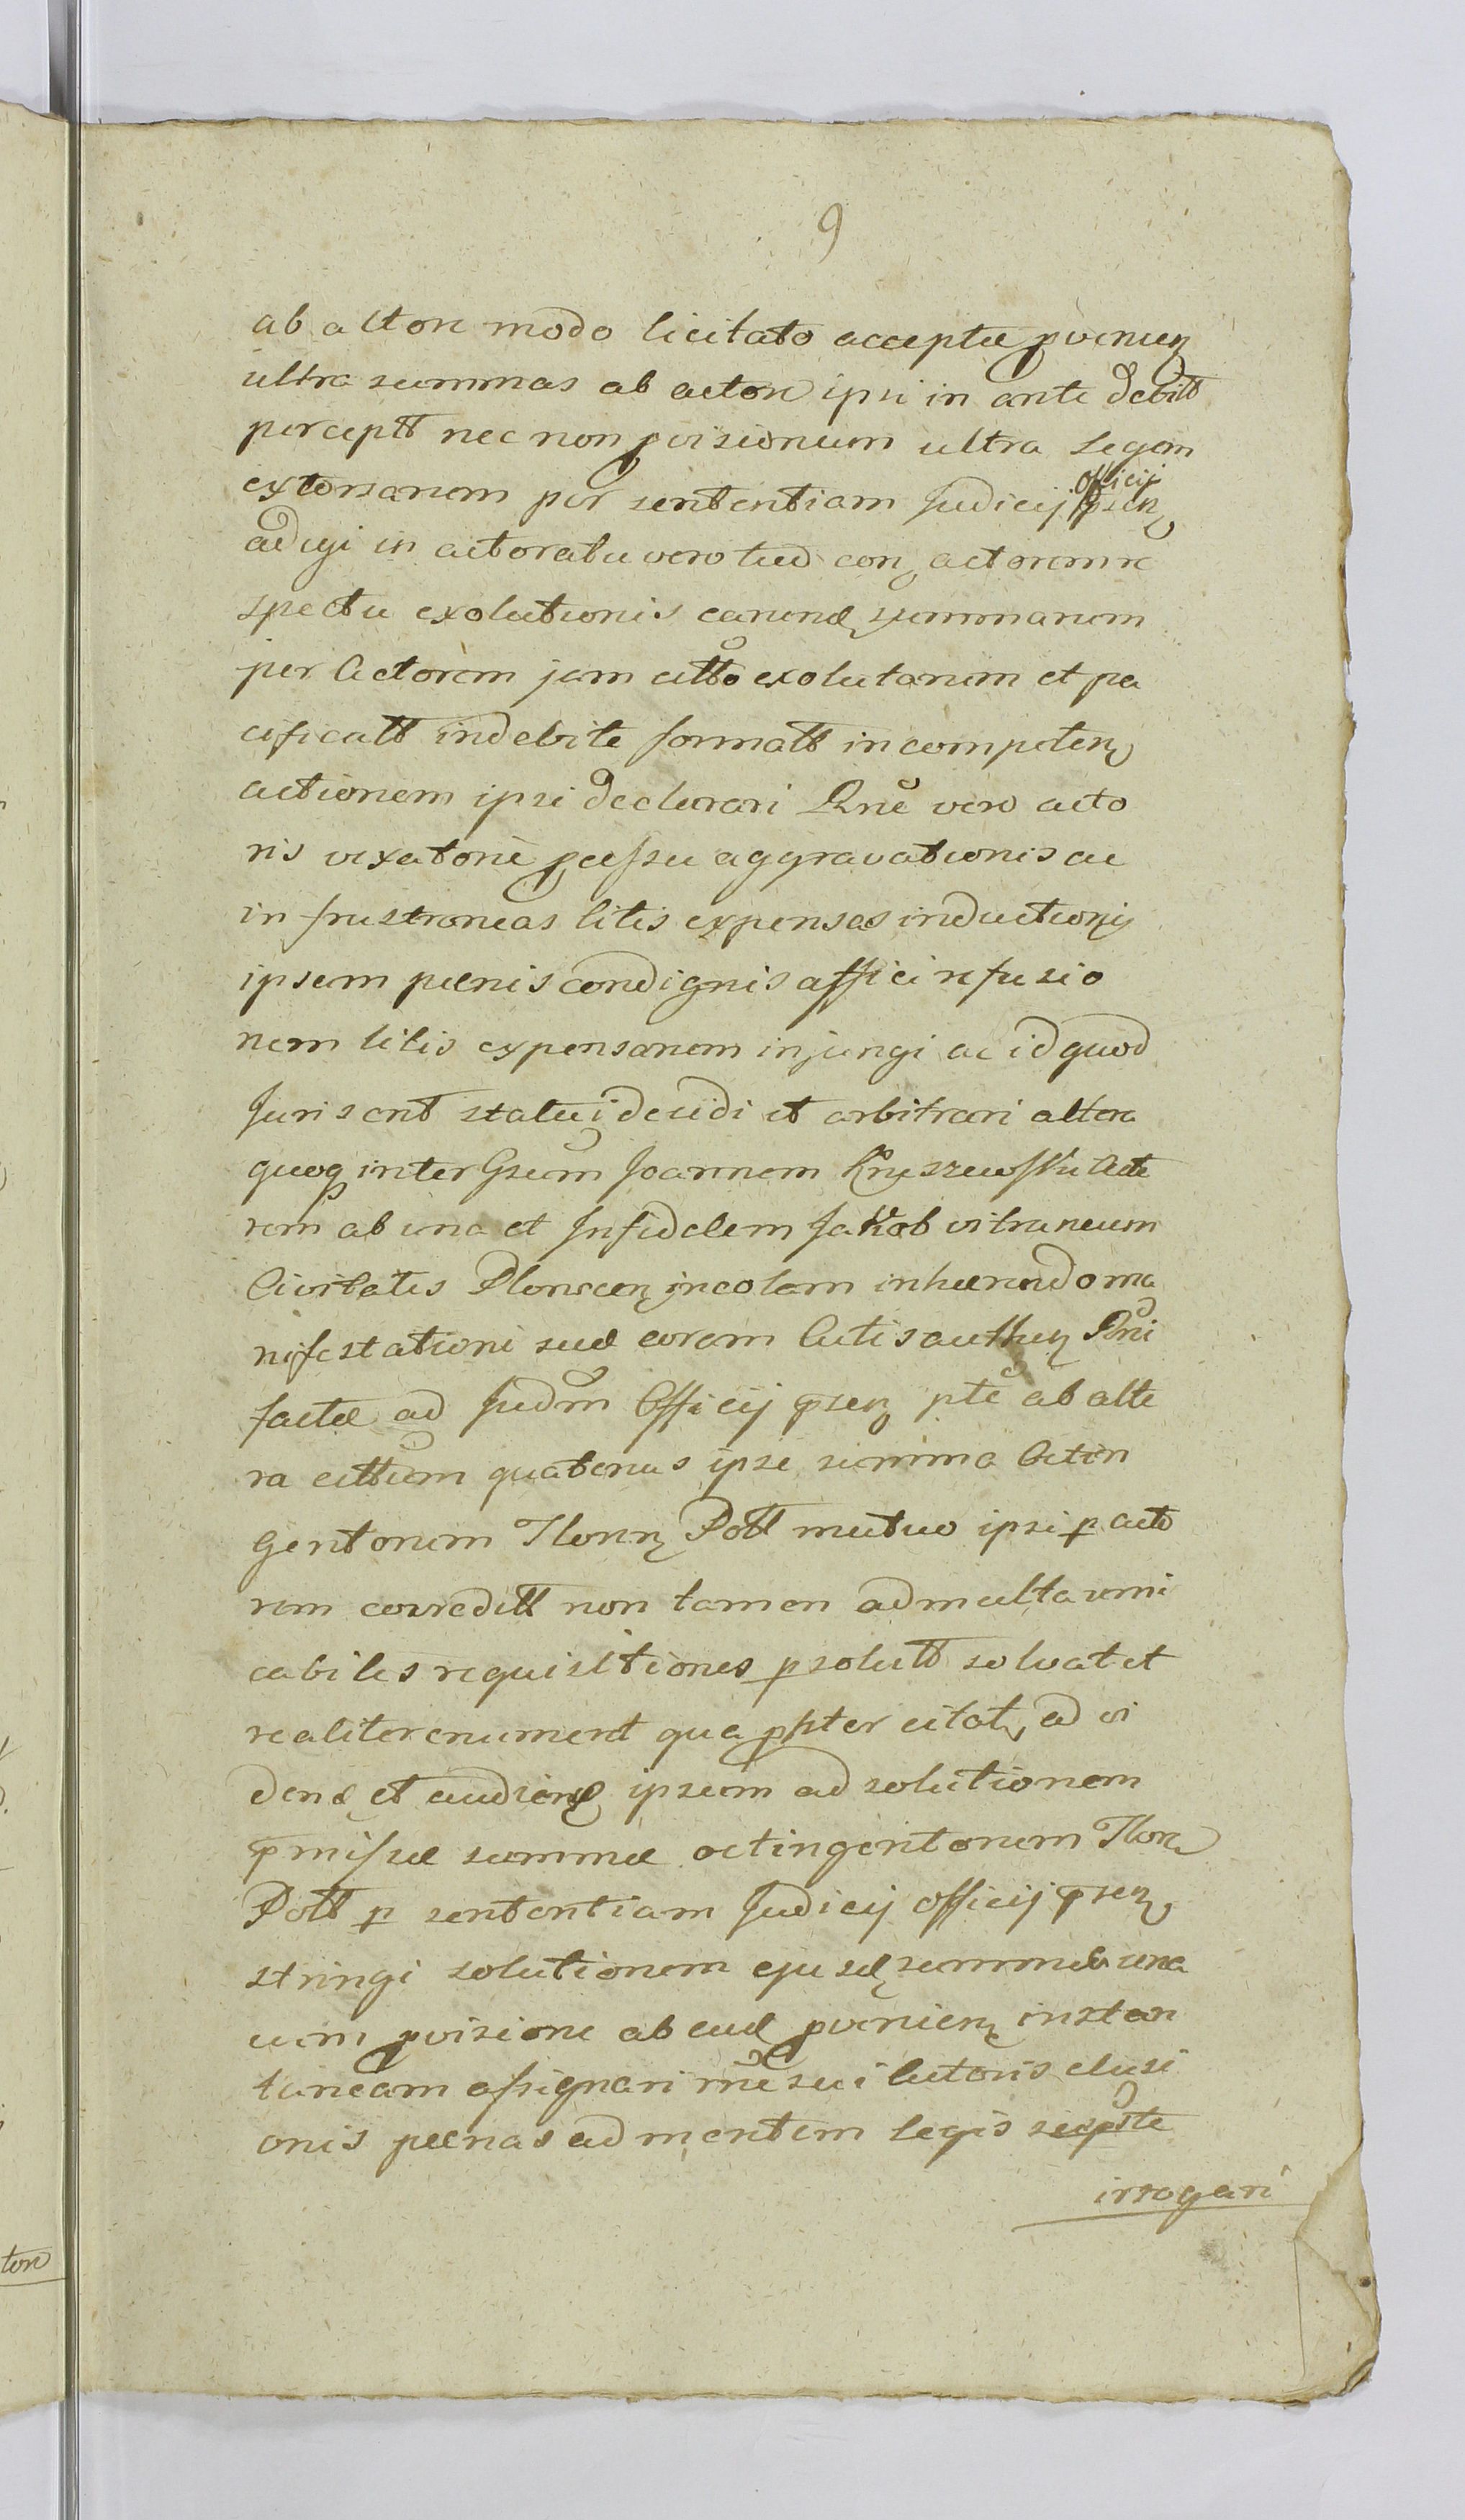 9
ab actore modo licitato acceptæ pvenien
ultra summas ab actore ipsi in ante debitt
perceptt nec non pvisionum ultra Legem
extorsarum per sententiam Judicij Officij psen
adigi in actoratu vero tud con actorem re
spectu exolutionis earund summarum
per Actorem jam citto exolutarum et pa
cificatt indebite formatt incompeten
actionem ipsi declarari Rne vero acto
ris vexatione pcessu aggravationis ac
in frustraneas litis expensas inductionis
ipsum pænis condignis affici refusio
nem litis expensarum injungi ac id quod
Juris erit statui decidi et arbitrari altera
quoq inter Gsum Joannem Kryszewski Acto
rem ab una et Infidelem Jakob vitraneum
Civitatis Plonscen incolam inhærendo ma
nifestationi suæ coram Actis authen Pni
factæ ad Judm Officij psen pte ab alte
ra cittum quatenus ipse summa Octin
gentorum Floren Poll mutuo ipsi p acto
rem concreditt non tamen ad multa ami
cabiles requisitiones psolutt solvat et
realiter enumeret qua ppter citat ad vi
dend et audiend ipsum ad solutionem
pmissæ summæ octingentorum Flor
Poll p sententiam Judicij officij psen
stringi solutionem ejusd summæ una
cum pvisione ab ead pvenien instan
taneam assignari rne sui Actoris elusi
onis pænas ad mentem legis
irrogari
ton